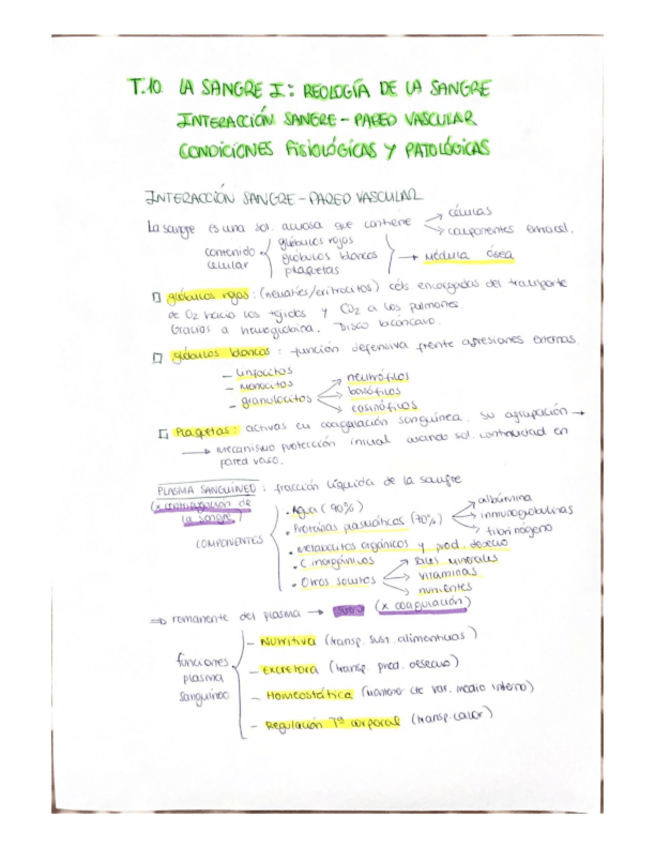 T.10. LA SANGRE I: REOLOGÍA DE LA SANGRE
INTERACCIÓN SANGRE - PARED VASCULAR
CONDICIONES FISIOLÓGICAS Y PATOLÓGICAS
INTERACCIÓN SANGRE - PARED VASCULAR
La sangre es una sol. acuosa que contiene → células
→ componentes extracel.
contenido celular
glóbulos rojos
glóbulos blancos → médula ósea
plaquetas
glóbulos rojos: (hematíes/eritrocitos) céls encargadas del transporte
de O2 hacia los tejidos y CO2 a los pulmones
Gracias a hemoglobina. Disco bicóncavo.
glóbulos blancos: función defensiva frente agresiones externas.
- linfocitos
- monocitos
- granulocitos
→ neutrófilos
→ basófilos
→ eosinófilos
Plaquetas: activas en coagulación sanguínea. Su agrupación →
→ mecanismo protección inicial cuando sol. continuidad en
pared vaso.
PLASMA SANGUÍNEO: fracción líquida de la sangre
(x centrifugación de
la sangre)
COMPONENTES
• Agua (90%)
• Proteínas plasmáticas (70%)
→ albúmina
→ inmunoglobulinas
→ fibrinógeno
• Metabolitos orgánicos y prod. desecho
• C inorgánicos
• Otros solutos
→ sales minerales
→ vitaminas
→ nutrientes
⇒ remanente del plasma → suero (x coagulación)
funciones
plasma
sanguíneo
- Nutritiva (transp. sust. alimenticias)
- Excretora (transp. prod. desecho)
- Homeostática (mantener cte var. medio interno)
- Regulación Tª corporal (transp. calor)